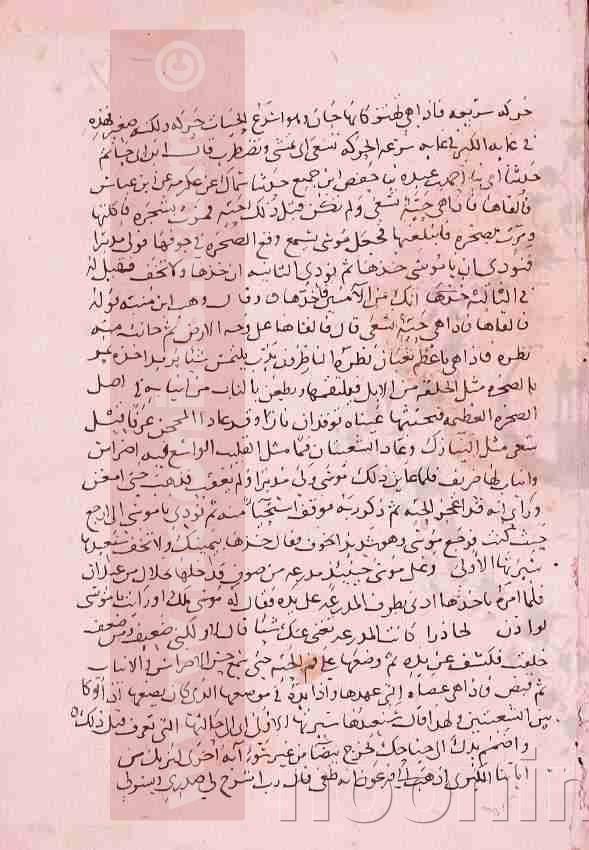 حركة سريعة فاذا هي تهتز كانها جان وهو اسرع الحيات حركة ولكنه صغير فهذه
في غاية الكبر في غاية سرعة الحركة تسعى اي تمشي وتضطرب قال ابن ابي حاتم
حدثنا ابي ثنا احمد بن عبدة ثنا حفص ابن جميع حدثنا سماك عن عكرمه عن ابن عباس
فالقاها فاذا هي حية تسعى ولم تكن قبل ذلك حية فمرت بشجرة فاكلتها
ومرت بصخرة فابتلعتها فجعل موسى يسمع وقع الصخرة في جوفها فولى مدبرا
فنودي ان يا موسى خذها ثم نودي الثانية ان خذها ولا تخف فقيل له
في الثالثة خذها انك من الآمنين فاخذها وقال وهب ابن منبه قوله
فالقاها فاذا هي حية تسعى قال فالقاها على وجه الارض ثم حانت منه
نظرة فاذا هي باعظم ثعبان نظره الناظرون يدب يلتمس شيا يريد اخذه يمر
بالصخرة مثل الخلفة من الابل فيلتقمها ويطعن بالناب من انيابه في اصل
الصخرة العظيمة فيجتثها عيناه توقدان نارا وقد عاد المحجن عرفا قيل
شعره مثل النيازك وعاد الشعبتان فما مثل القليب الواسع فيه اضراس
وانياب لها صريف فلما عاين ذلك موسى ولى مدبرا ولم يعقب فذهب حتى امعن
وراى انه قد اعجز الحية ثم ذكر ربه فوقف استحياء منه ثم نودي يا موسى ان ارجع
حيث كنت فرجع موسى وهو شديد الخوف فقال خذها بيمينك ولا تخف سنعيدها
سيرتها الاولى وعلى موسى حينئذ مدرعه من صوف قد خلها بخلال من عيدان
فلما امره باخذها ادنى طرف المدرعة على يده فقال له ملك ارايت يا موسى
لو اذن لما تحاذر اكانت المدرعه تغني عنك شيا قال لا ولكني ضعيف ومن ضعف
خلقت فكشف عن يده ثم وضعها على فم الحية حتى سمع حس الاضراس والانياب
ثم قبض فاذا هي عصاه التي عهدها واذا يده في موضعها الذي كان يضعها اذا توكا
بين الشعبتين ولهذا قال سنعيدها سيرتها الاولى اي الى حالتها التي تعرف قبل ذلك
واضمم يدك الى جناحك تخرج بيضا من غير سوء آية اخرى لنريك من
آياتنا الكبرى اذهب الى فرعون انه طغى قال رب اشرح لي صدري ويسر لي
noorin